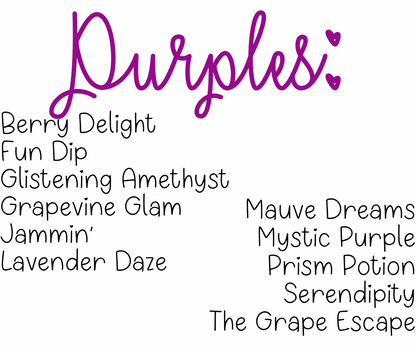 Purples:
Berry Delight
Fun Dip
Glistening Amethyst
Grapevine Glam
Jammin'
Lavender Daze
Mauve Dreams
Mystic Purple
Prism Potion
Serendipity
The Grape Escape